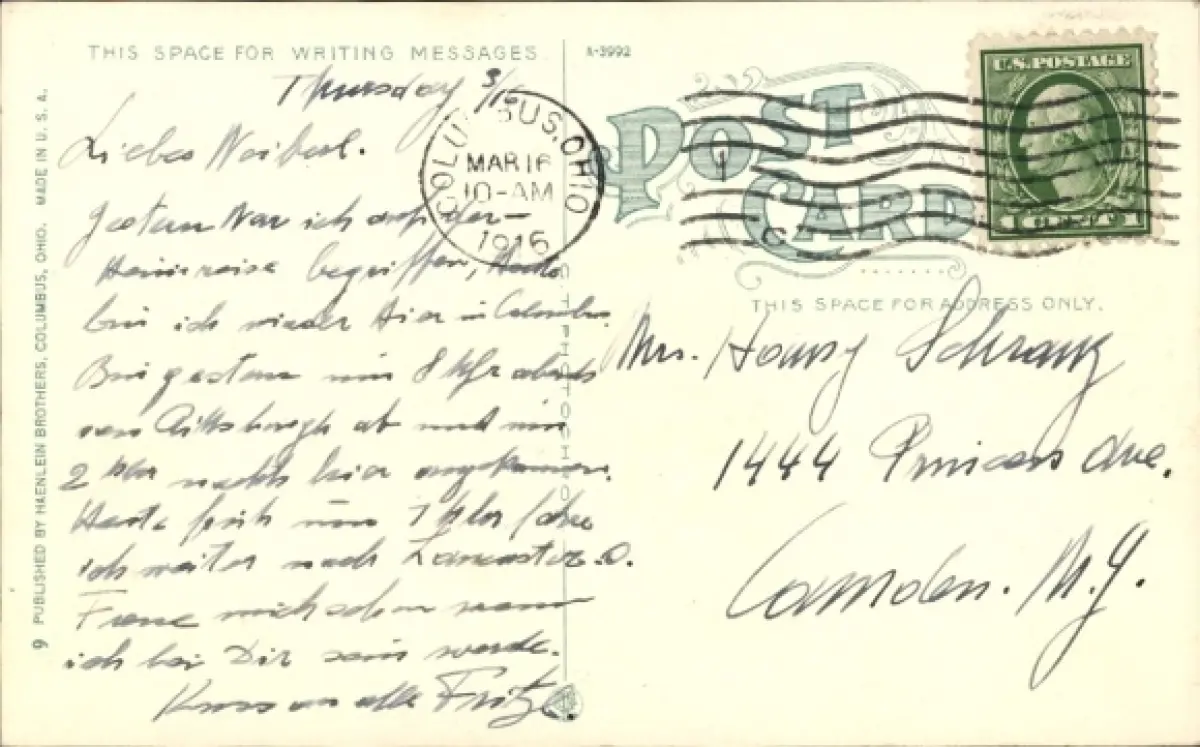 THIS SPACE FOR WRITING MESSAGES
A-3992
Thursday 3/16
Liebes Weiberl.
Gestern war ich auf der
Heimreise begriffen, Heute
bin ich wieder Hier in Columbus.
Bin gestern um 8 Uhr abends
von Pittsburgh ab und um
2 Uhr nachts hier angekommen.
Heute früh um 7 Uhr fahre
ich weiter nach Lancaster. O.
Freue mich schon wann
ich bei Dir sein werde.
Kuss an alle Fritz.
COLUMBUS, OHIO
MAR 16
10-AM
1916
POST CARD
U.S. POSTAGE
1 CENT 1
THIS SPACE FOR ADDRESS ONLY.
Mrs. Schranz
1444 Princess Ave.
Camden. N.J.
9 PUBLISHED BY HAENLEIN BROTHERS, COLUMBUS, OHIO. MADE IN U. S. A.